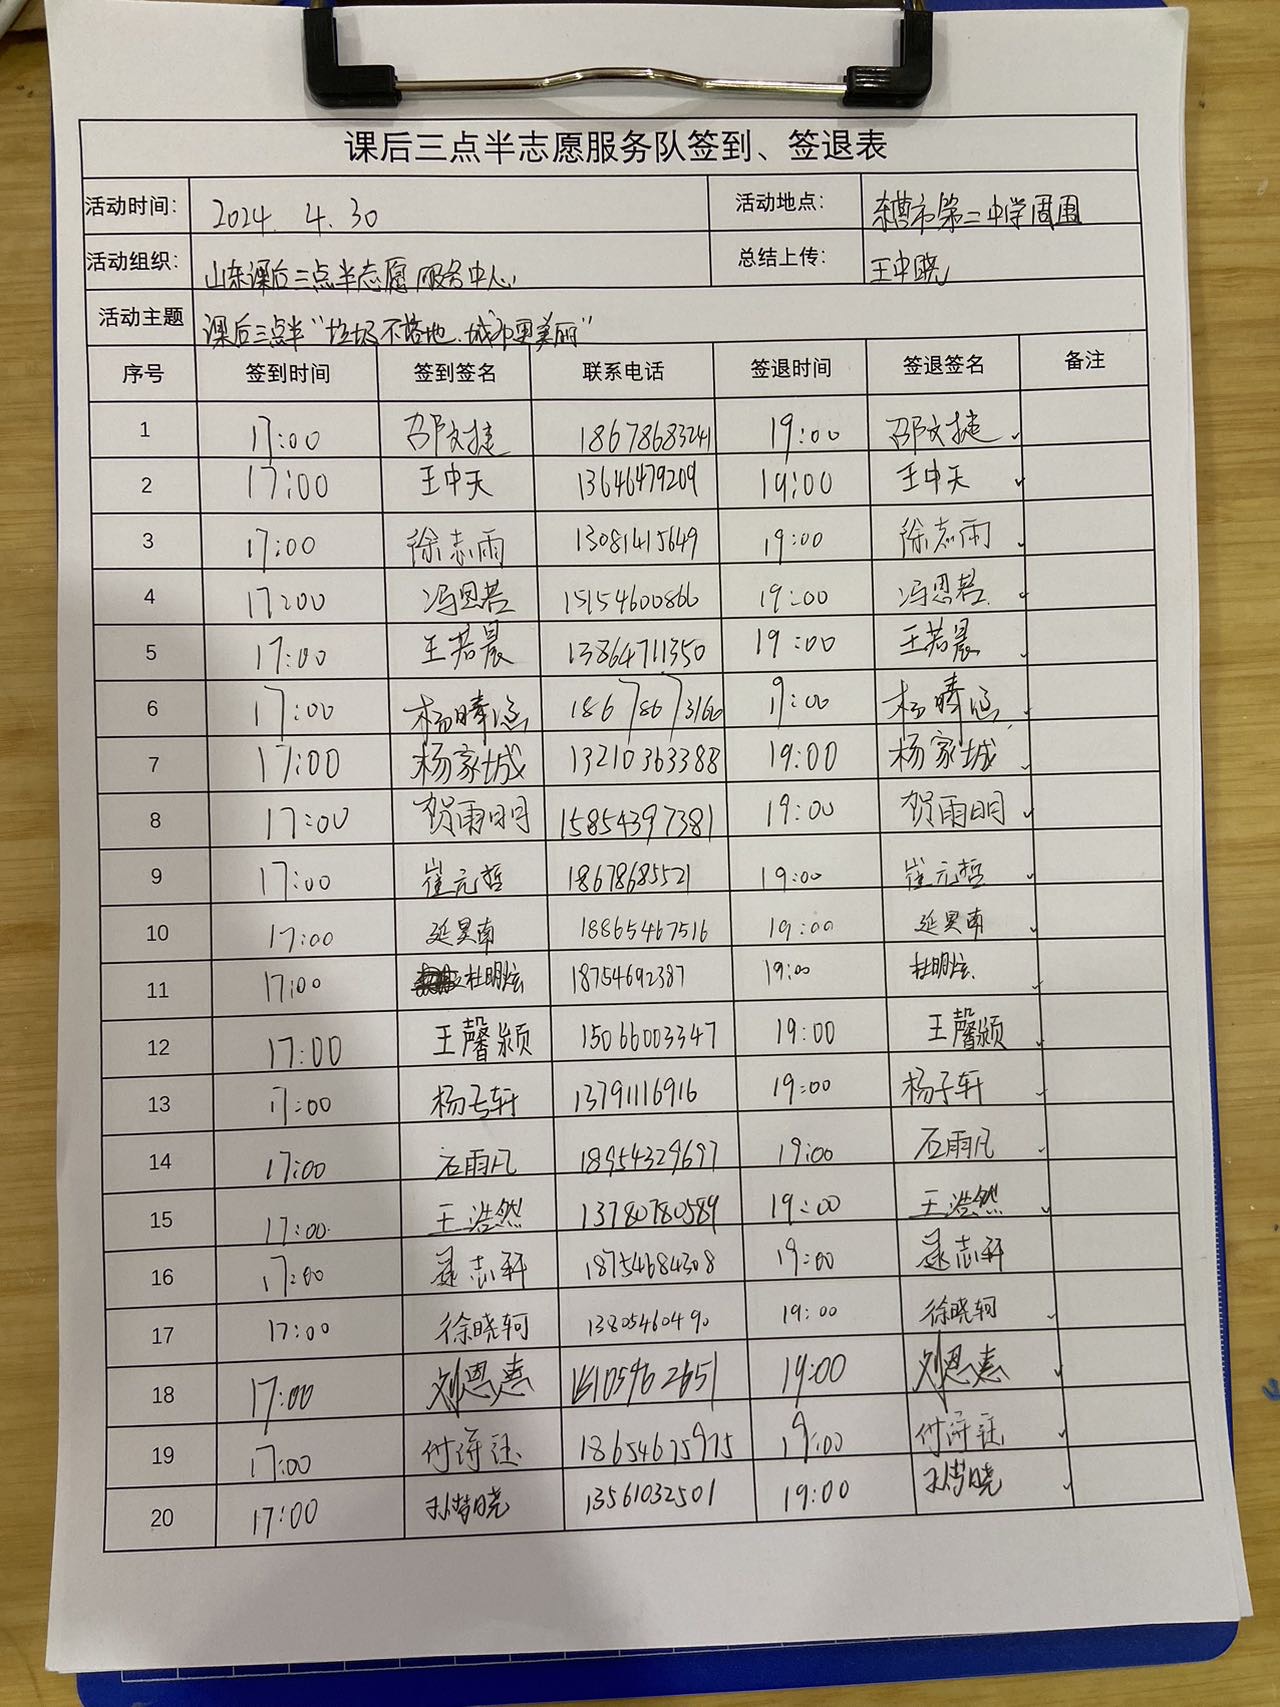 课后三点半志愿服务队签到、签退表
活动时间: 2024. 4. 30 活动地点: 东营市第二中学周围
活动组织: 山东课后三点半志愿服务中心 总结上传: 王中晓
活动主题 课后三点半“垃圾不落地.城市更美丽”
序号 签到时间 签到签名 联系电话 签退时间 签退签名 备注
1 17:00 邵文捷 18678683241 19:00 邵文捷
2 17:00 王中天 13646479209 19:00 王中天
3 17:00 徐志雨 13081415649 19:00 徐志雨
4 17:00 冯思若 15154600866 19:00 冯思若
5 17:00 王若晨 13864711350 19:00 王若晨
6 17:00 杨晴 18678673166 19:00 杨晴
7 17:00 杨家城 13210363388 19:00 杨家城
8 17:00 贺雨明 15854397381 19:00 贺雨明
9 17:00 崔元哲 18678685521 19:00 崔元哲
10 17:00 延昊南 18865467516 19:00 延昊南
11 17:00 杜明炫 18754692387 19:00 杜明炫
12 17:00 王馨颍 15066003347 19:00 王馨颍
13 17:00 杨子轩 13791116916 19:00 杨子轩
14 17:00 石雨凡 18954329697 19:00 石雨凡
15 17:00 王浩然 13780780589 19:00 王浩然
16 17:00 志轩 18754684308 19:00 志轩
17 17:00 徐晓轲 13805460490 19:00 徐晓轲
18 17:00 刘恩惠 19:00 刘恩惠
19 17:00 付诗 18654675975 19:00 付诗
20 17:00 13561032501 19:00